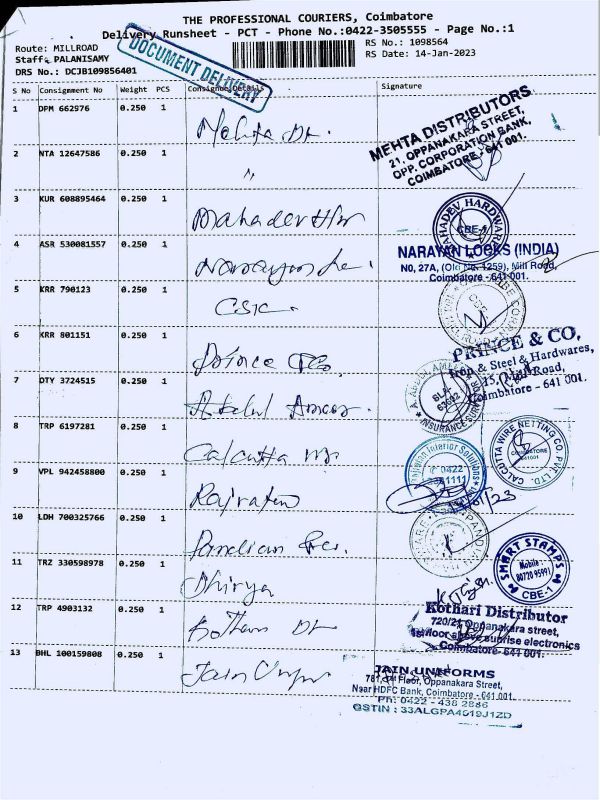 THE PROFESSIONAL COURIERS, Coimbatore
Delivery Runsheet - PCT - Phone No.:0422-3505555 - Page No.:1
Route: MILLROAD
RS No.: 1098564
Staff: PALANISAMY
RS Date: 14-Jan-2023
DRS No.: DCJB109856401
DOCUMENT DELIVERY
S No Consignment No Weight PCS Consignee Details Signature
1 DPM 662976 0.250 1 Mehta Dt.
MEHTA DISTRIBUTORS
21, OPPANAKARA STREET,
OPP. CORPORATION BANK,
COIMBATORE - 641 001.
2 NTA 12647586 0.250 1 "
3 KUR 608895464 0.250 1 Mahadev H/w
MAHADEV HARDWARE
CBE-1
4 ASR 530081557 0.250 1
NARAYAN LOCKS (INDIA)
N0, 27A, (Old No. 1259), Mill Road,
Coimbatore - 641 001.
5 KRR 790123 0.250 1
6 KRR 801151 0.250 1 Prince & Co.
PRINCE & CO,
Iron & Steel & Hardwares,
15, Mill Road,
Coimbatore - 641 001.
7 DTY 3724515 0.250 1 Abdul Ameer
8 TRP 6197281 0.250 1 Calcutta
CALCUTTA WIRE NETTING CO. PVT. LTD.
COIMBATORE
641001
9 VPL 942458800 0.250 1
Interior Solutions
0422
10 LDH 700325766 0.250 1 Pandian
11 TRZ 330598978 0.250 1 Dhirya
SMART STAMPS
Mobile :
80720 95991
CBE-1
12 TRP 4903132 0.250 1 Kothari Dt
Kothari Distributor
720/21 Oppanakara street,
1st floor above suprise electronics
Coimbatore- 641 001.
13 BHL 100159808 0.250 1 Jain
JAIN UNIFORMS
Floor, Oppanakara Street,
Near HDFC Bank, Coimbatore - 641 001.
Ph: 0422 - 438 2886
GSTIN : 33ALGPA4019J1ZD